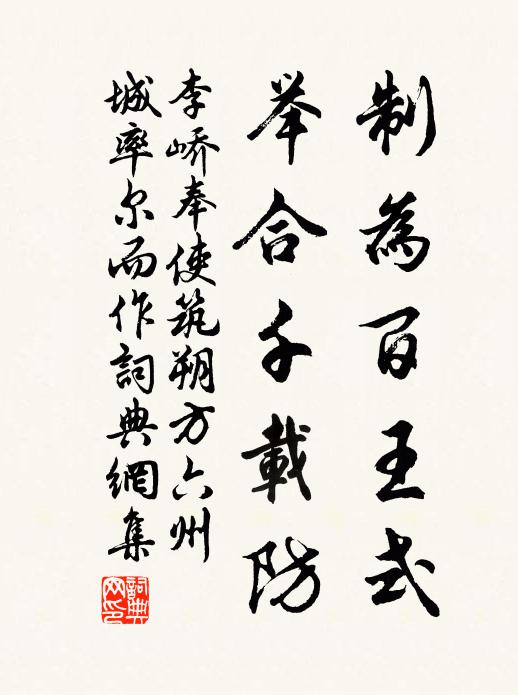 制為百王式
举合千載防
李峤奉使筑朔方六州
城率尔而作詞典網集
詞典
网印